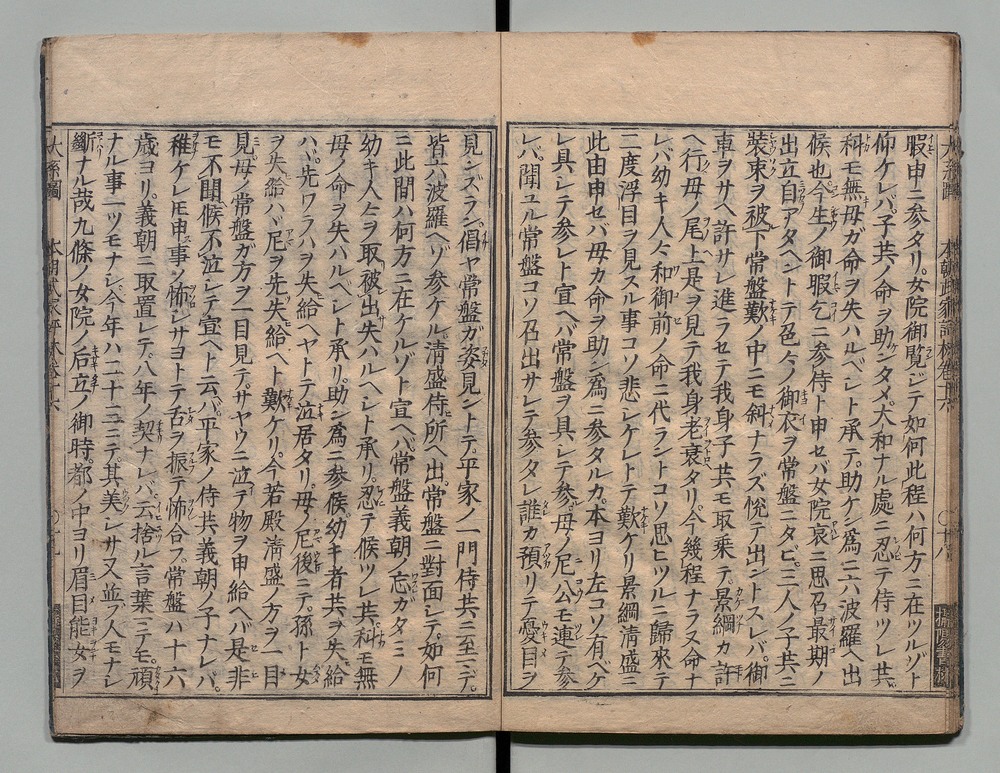 暇申ニ参タリ。女院御覧ジテ如何此程ハ何方ニ在ツルゾト
仰ケレバ。子共ノ命ヲ助ンタメ。大和ナル處ニ忍テ侍ツレ共
科モ無母ガ命ヲ失ハルベシト承テ。助ケン爲ニ六波羅ヘ出
候也今生ノ御暇乞ニ参侍ト申セバ女院哀ニ思召最期ノ
出立自アタヘントテ色々ノ御衣ヲ常盤ニタビ。三人ノ子共ニ
裝束ヲ被下常盤歎ノ中ニモ斜ナラズ悦テ出ントスレバ。御
車ヲサヘ許サレ進ラセテ我身子共モ取乗テ。景綱カ許
ヘ行母ノ尾上是ヲ見テ我身老衰タリ。今幾程ナラヌ命ナ
レバ幼キ人々和御前ノ命ニ代ラントコソ思ヒツルニ歸來テ
二度浮目ヲ見スル事コソ悲シケレトテ歎ケリ景綱清盛ニ
此由申セバ母カ命ヲ助ン爲ニ参タルカ。本ヨリ左コソ有ベケ
レ具シテ参レト宣ヘバ常盤ヲ具シテ参。母ノ尼公モ連テ参
レバ。聞ユル常盤コソ召出サレテ参タレ誰カ預リテ憂目ヲ
大系圖 本朝武家評林巻十六 〇十八 攝陽書林
見ンズラン。倡ヤ常盤ガ姿見ントテ。平家ノ一門侍共ニ至ニテ。
皆六波羅ヘゾ参ケル清盛侍所ヘ出。常盤ニ對面シテ。如何
ニ此間ハ何方ニ在ケルゾト宣ヘバ。常盤義朝ノ忘ガタミノ
幼キ人々ヲ取被出失ハルヘシト承リ。忍テ候ツレ共科モ無
母ノ命ヲ失ハルベシト承リ。助ン爲ニ参候幼キ者共ヲ失給
ハヾ。先ワラハヲ失給ヘヤトテ泣居タリ。母ノ尼後ニテ。孫ト女
ヲ失給ハヾ尼ヲ先失給ヘト歎ケリ。今若殿清盛ノ方ヲ一目
見母ノ常盤ガ方ヲ一目見テ。サヤウニ泣テ物ヲ申給ヘバ是非
モ不聞候不泣シテ宣ヘト云バ。平家ノ侍共義朝ノ子ナレバ。
稚ケレ𪜈申事ノ怖シサヨトテ舌ヲ振テ怖合フ。常盤ハ十六
歳ヨリ。義朝ニ取置レテ。八年ノ契ナレバ。云捨ル言葉ニテモ。頑
ナル事一ツモナシ。今年ハ二十三ニテ。其美シサ又並ブ人モナシ
斷ナル哉九條ノ女院ノ后立ノ御時。都ノ中ヨリ眉目能女ヲ
大系圖 本朝武家評林巻十六 〇十九